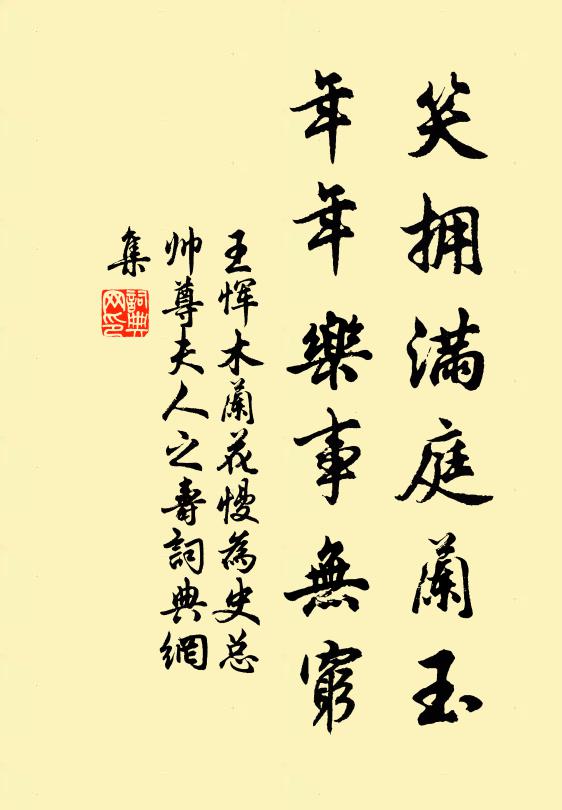 笑拥滿庭蘭玉
年年樂事無窮
王恽木蘭花慢為史总
帅尊夫人之壽詞典網
集
詞典
网印